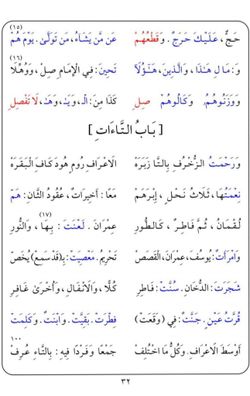 (١٥)
حَجٌّ، عَلَيْكَ حَرَجٌ. وَقَطْعُهُمْ عَن مَّن يَشَاءُ، مَن تَوَلَّىٰ. يَوْمَ هُمْ
(١٦)
وَ: مَالِ هَٰذَا، وَالَّذِينَ، هَٰؤُلَا تَحِينَ: فِي الإِمَامِ صِلْ، وَوُهِّلَا
وَوَزَنُوهُمُ، وَكَالُوهُمْ صِلِ كَذَا مِنَ: الْـ، وَيَـٰ، وَهَـٰ، لَا تَفْصِلِ
[ بَابُ التَّاءَاتِ ]
وَرَحْمَتُ الزُّخْرُفِ بِالتَّا زَبَرَهْ الَاعْرَافِ رُومٍ هُودَ كَافِ الْبَقَرَهْ
نِعْمَتُهَا، ثَلَاثُ نَحْلٍ، إِبْرَهَمْ مَعًا: أَخِيرَاتٌ، عُقُودُ الثَّانِ: هَمّ
(١٧)
لُقْمَانُ، ثُمَّ فَاطِرٌ، كَالطُّورِ عِمْرَانَ. لَعْنَتَ: بِهَا، وَالنُّورِ
وَامْرَأَتُ: يُوسُفَ، عِمْرَانَ، الْقَصَصْ تَحْرِيمُ. مَعْصِيَتْ: بِـ(قَدْ سَمِعْ) يُخَصّ
شَجَرَتَ: الدُّخَانِ. سُنَّتْ: فَاطِرِ كُلًّا، وَالَانْفَالِ، وَأُخْرَىٰ غَافِرِ
قُرَّتُ عَيْنٍ. جَنَّتٌ: فِي (وَقَعَتْ) فِطْرَتْ. بَقِيَّتْ. وَابْنَتٌ. وَكَلِمَتْ
١٠٠
أَوْسَطَ الَاعْرَافِ. وَكُلُّ مَا اخْتُلِفْ جَمْعًا وَفَرْدًا فِيهِ: بِالتَّاءِ عُرِفْ
٣٢